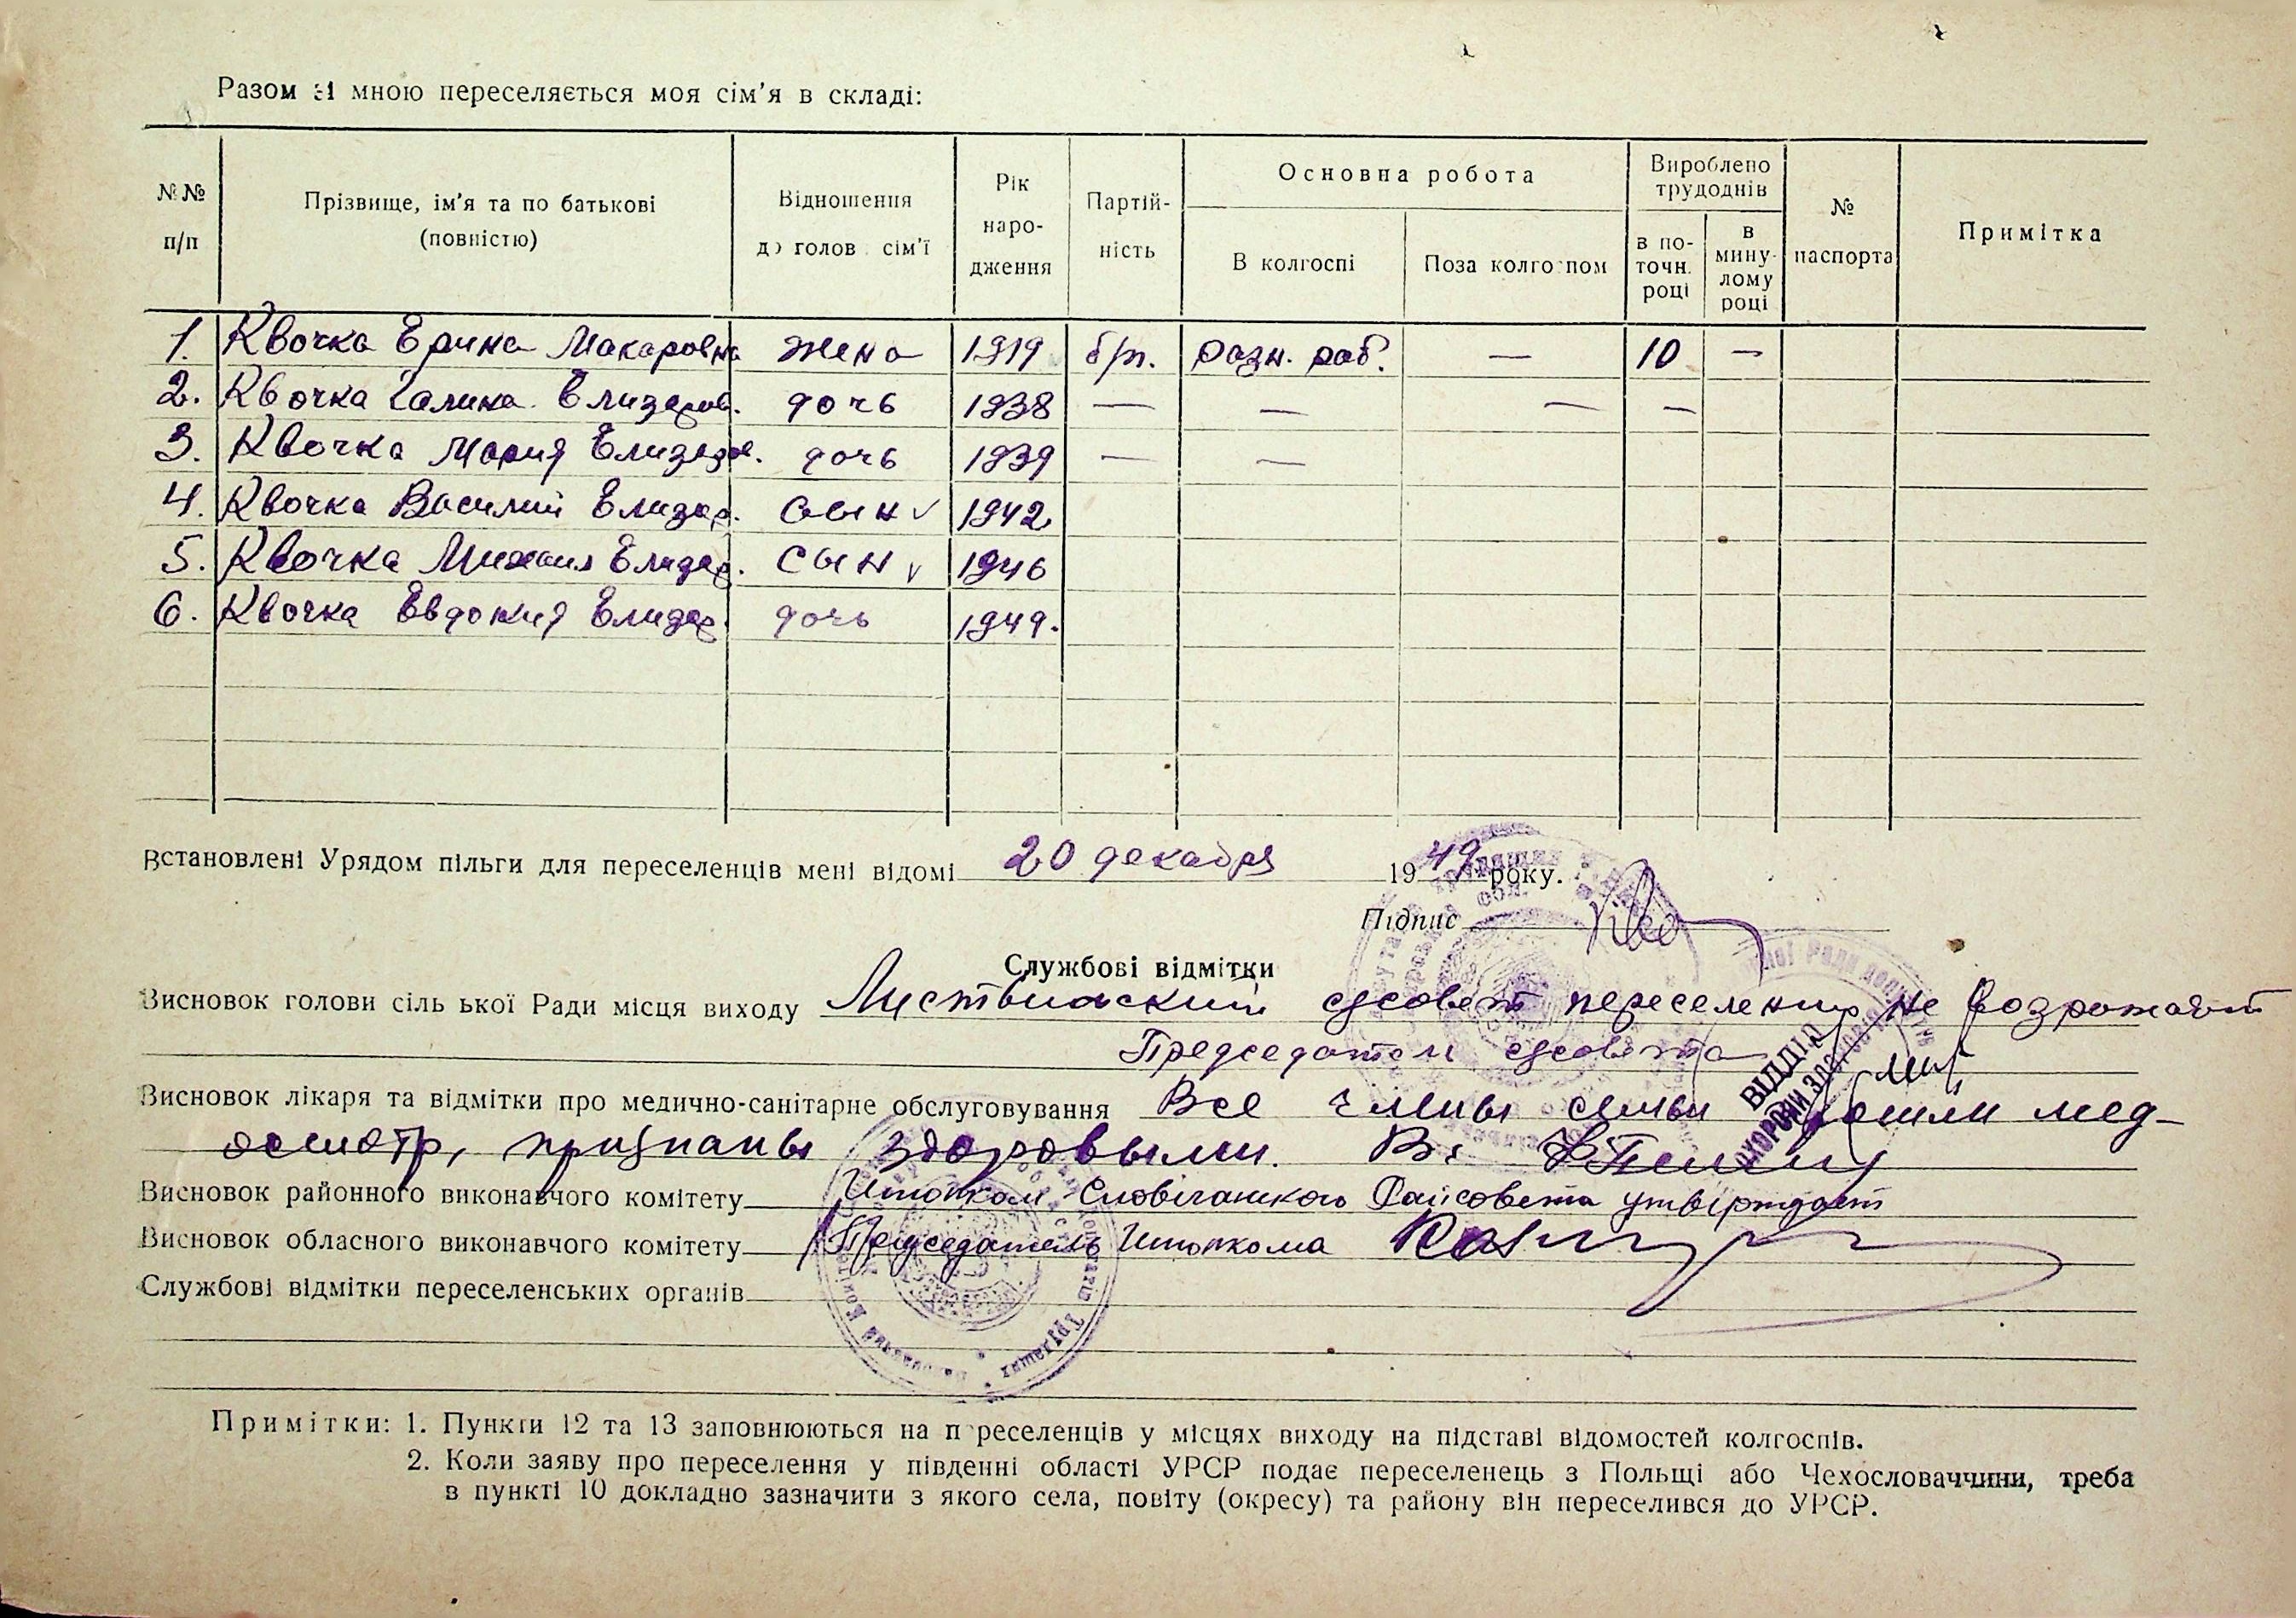 Разом зі мною переселяється моя сім’я в складі:
№№ п/п
Прізвище, ім’я та по батькові (повністю)
Відношення до голов. сім’ї
Рік народження
Партійність
Основна робота
В колгоспі
Поза колгоспом
Вироблено трудоднів
в поточн. році
в минулому році
№ паспорта
Примітка
1. Квочка Ерина Макаровна жена 1919 б/п. разн. раб. — 10 —
2. Квочка Галина Елизаров. дочь 1938 — — — —
3. Квочка Мария Елизаров. дочь 1939 — —
4. Квочка Василий Елизар. сын 1942
5. Квочка Михаил Елизар. сын 1946
6. Квочка Евдокия Елизар. дочь 1949.
Встановлені Урядом пільги для переселенців мені відомі 20 декабря 1949 року.
Підпис
Службові відмітки
Висновок голови сільської Ради місця виходу сельсовет переселению не возражает
Председатель сельсовета
ВІДДІЛ
ОХОРОНИ ЗДОРОВ'Я
Висновок лікаря та відмітки про медично-санітарне обслуговування Все члены семьи прошли мед-
осмотр, признаны здоровыми.
Висновок районного виконавчого комітету Исполком Словечанского Райсовета утверждает
Висновок обласного виконавчого комітету Председатель Исполкома
Службові відмітки переселенських органів
Примітки: 1. Пункти 12 та 13 заповнюються на переселенців у місцях виходу на підставі відомостей колгоспів.
2. Коли заяву про переселення у південні області УРСР подає переселенець з Польщі або Чехословаччини, треба
в пункті 10 докладно зазначити з якого села, повіту (окресу) та району він переселився до УРСР.